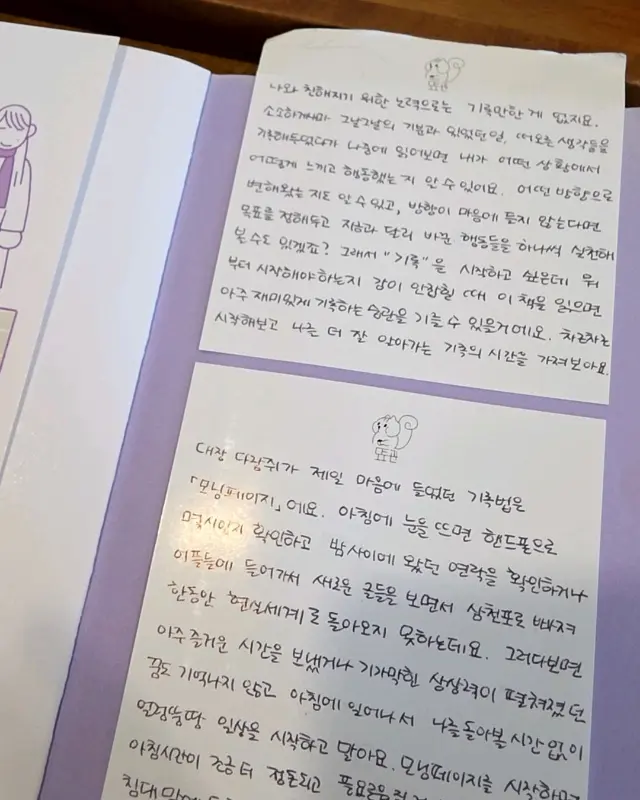 나와 친해지기 위한 노력으로는 기록만한 게 없지요.
소소하게나마 그날그날의 기분과 있었던 일, 떠오른 생각들을
기록해두었다가 나중에 읽어보면 내가 어떤 상황에서
어떻게 느끼고 행동했는지 알 수 있어요. 어떤 방향으로
변해왔는지도 알 수 있고, 방향이 마음에 들지 않는다면
목표를 정해두고 지금과 달리 바꾼 행동들을 하나씩 실천해
볼 수도 있겠죠? 그래서 "기록"을 시작하고 싶은데 뭐
부터 시작해야하는지 감이 안잡힐 때 이 책을 읽으면
아주 재미있게 기록하는 습관을 기를 수 있을거예요. 차근차근
시작해보고 나를 더 잘 알아가는 기록의 시간을 가져보아요.
대장 다람쥐가 제일 마음에 들었던 기록법은
「모닝페이지」에요. 아침에 눈을 뜨면 핸드폰으로
몇시인지 확인하고 밤사이에 왔던 연락을 확인하거나
어플들에 들어가서 새로운 글들을 보면서 삼천포로 빠져
한동안 현실세계로 돌아오지 못하는데요. 그러다보면
아주 즐거운 시간을 보냈거나 기가막힌 상상력이 펼쳐졌던
꿈도 기억나지 않고 아침에 일어나서 나를 돌아볼 시간 없이
얼렁뚱땅 일상을 시작하고 말아요. 모닝페이지를 시작하면
아침시간이 조금 더 정돈되고
침대 맡에